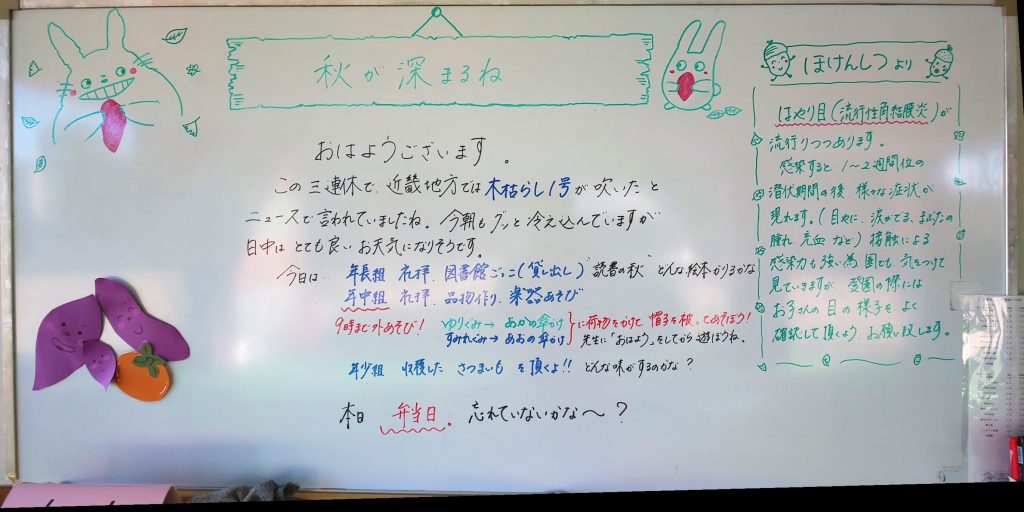 秋が深まるね
おはようございます。
この三連休で、近畿地方では木枯らし1号が吹いたと
ニュースで言われていましたね。今朝もグッと冷え込んでいますが
日中はとても良いお天気になりそうです。
今日は… 年長組 礼拝、図書館ごっこ(貸し出し)"読書の秋"どんな絵本かりるかな
年中組 礼拝、品物作り、楽器あそび
9時まで外あそび! ゆりぐみ→あかの傘かけ
すみれぐみ→あおの傘かけ
}に荷物をかけて帽子を被ってあそぼう!
先生に「おはよう」をしてから遊ぼうね。
年少組 収穫したさつまいもを頂くよ!! どんな味がするのかな?
本日 弁当日。忘れていないかな〜?
ほけんしつより
はやり目(流行性角結膜炎)が
流行りつつあります。
感染すると1〜2週間位の
潜伏期間の後、様々な症状が
現れます。(目やに、涙がでる、まぶたの
腫れ、充血など)接触による
感染力も強い為、園でも気をつけて
見ていきますが、登園の際には
お子さんの目の様子をよく
確認して頂くよう、お願い致します。